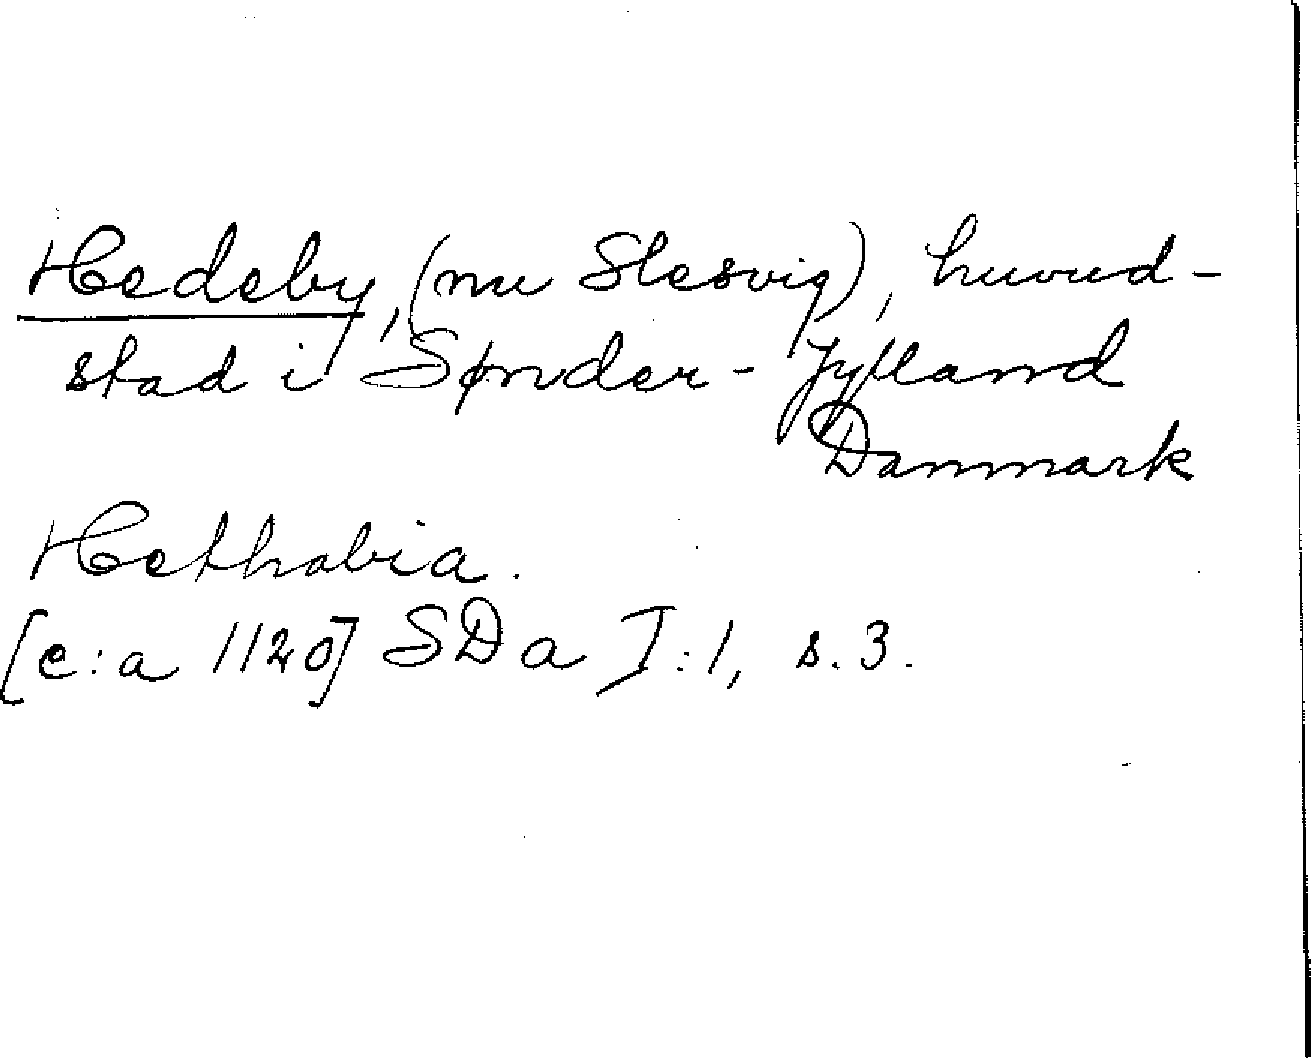 Hedeby, (nu Slesvig), huvud-
stad i Sønder-Jylland
Danmark
Hethabia.
[c:a 1120] SDa I:1, s. 3.